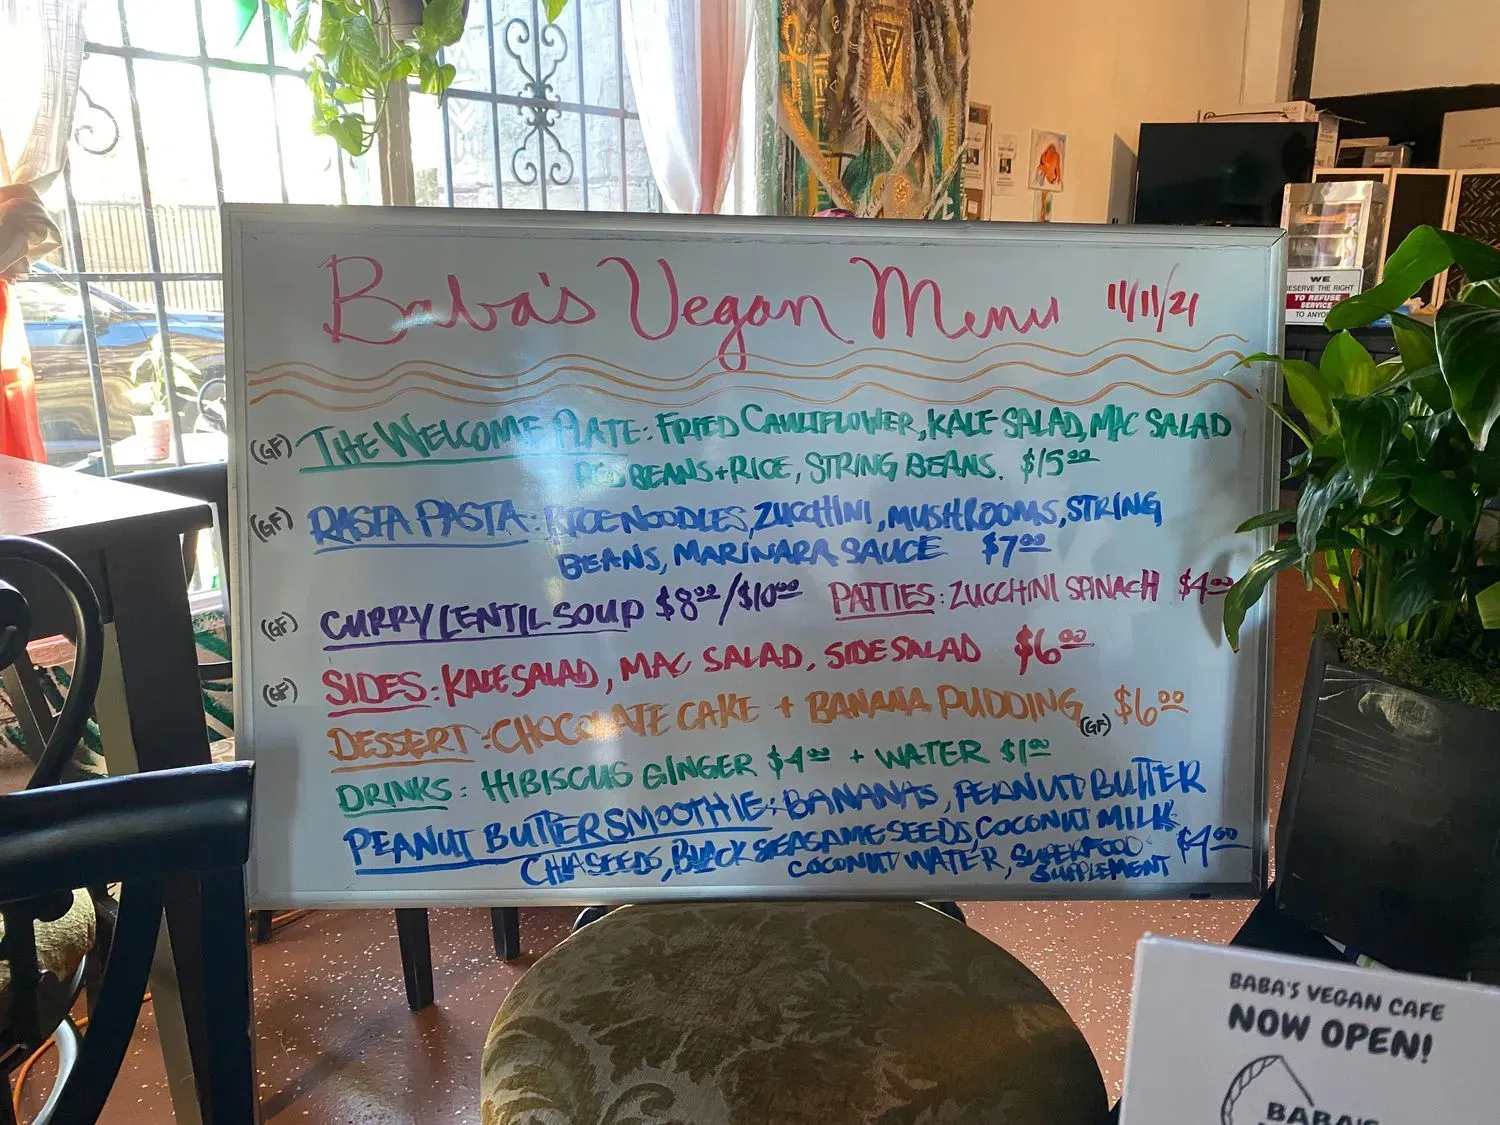 Baba's Vegan Menu 11/11/21
(GF) THE WELCOME PLATE: FRIED CAULIFLOWER, KALE SALAD, MAC SALAD
RED BEANS + RICE, STRING BEANS. $15.00
(GF) RASTA PASTA: RICE NOODLES, ZUCCHINI, MUSHROOMS, STRING
BEANS, MARINARA SAUCE $7.00
(GF) CURRY LENTIL SOUP $8.00/$10.00 PATTIES: ZUCCHINI SPINACH $4.00
(GF) SIDES: KALE SALAD, MAC SALAD, SIDE SALAD $6.00
DESSERT: CHOCOLATE CAKE + BANANA PUDDING (GF) $6.00
DRINKS: HIBISCUS GINGER $4.00 + WATER $1.00
PEANUT BUTTER SMOOTHIE: BANANAS, PEANUT BUTTER
CHIA SEEDS, BLACK SEASAME SEEDS, COCONUT MILK
COCONUT WATER, SUPERFOOD $4.00
SUPPLEMENT
WE
RESERVE THE RIGHT
TO REFUSE
SERVICE
TO ANYO
BABA'S VEGAN CAFE
NOW OPEN!
BABA'S